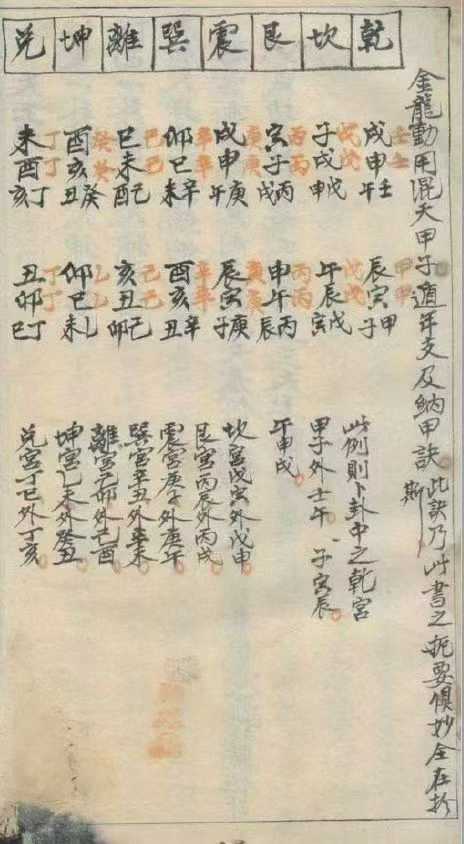 金龍動用混天甲子適年支及納甲訣 此訣乃此書之扼要傾妙全在於
斯
乾 坎 艮 震 巽 離 坤 兌
戌壬申壬午壬
子戊戌戊申戊
寅丙子丙戌丙
戌庚申庚午庚
卯辛巳辛未辛
巳己未己酉己
酉癸亥癸丑癸
未丁酉丁亥丁
辰甲寅甲子甲
午戊辰戊寅戊
申丙午丙辰丙
辰庚寅庚子庚
酉辛亥辛丑辛
亥己丑己卯己
卯乙巳乙未乙
丑丁卯丁巳丁
此例則卜卦中之乾宮
甲子外壬午 子寅辰
午申戌
坎宮戊寅外戊申
艮宮丙辰外丙戌
震宮庚子外庚午
巽宮辛丑外辛未
離宮己卯外己酉
坤宮乙未外癸丑
兌宮丁巳外丁亥